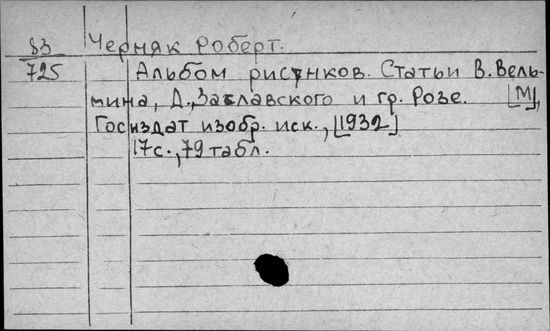 83 Черняк Роберт.
725 Альбом рисунков. Статьи В. Вель-
мина, Д. Заславского и гр. Розе. [М],
Госиздат изобр. иск., [1932]
17 с., 79 табл.